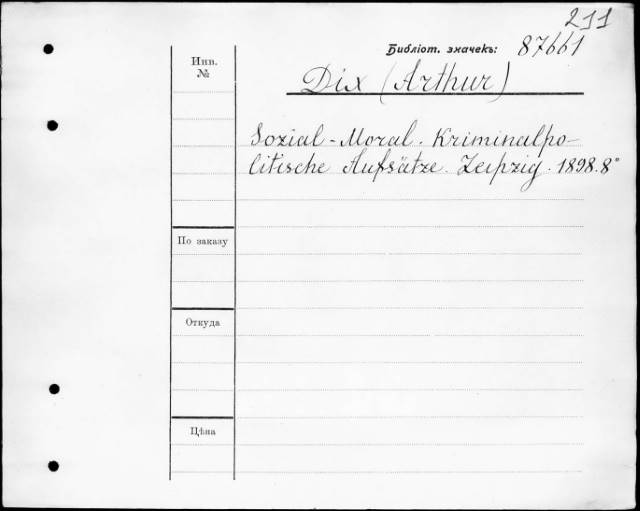 211
Библіот. значекъ: 87661
Инв.
№
Dix (Arthur)
Sozial-Moral. Kriminalpo-
litische Aufsätze. Leipzig. 1898. 8°
По заказу
Откуда
Цѣна